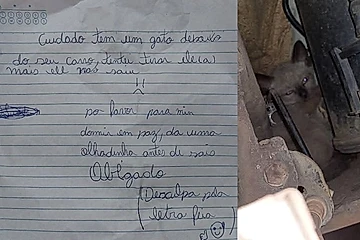 Cuidado tem um gato debaixo
do seu carro, tentei tirar ele(a)
mais ele não saiu
!!
por favor para mim
dormir em paz, da uma
olhadinha antes de sair
Obrigado
(Desculpa pela
letra feia